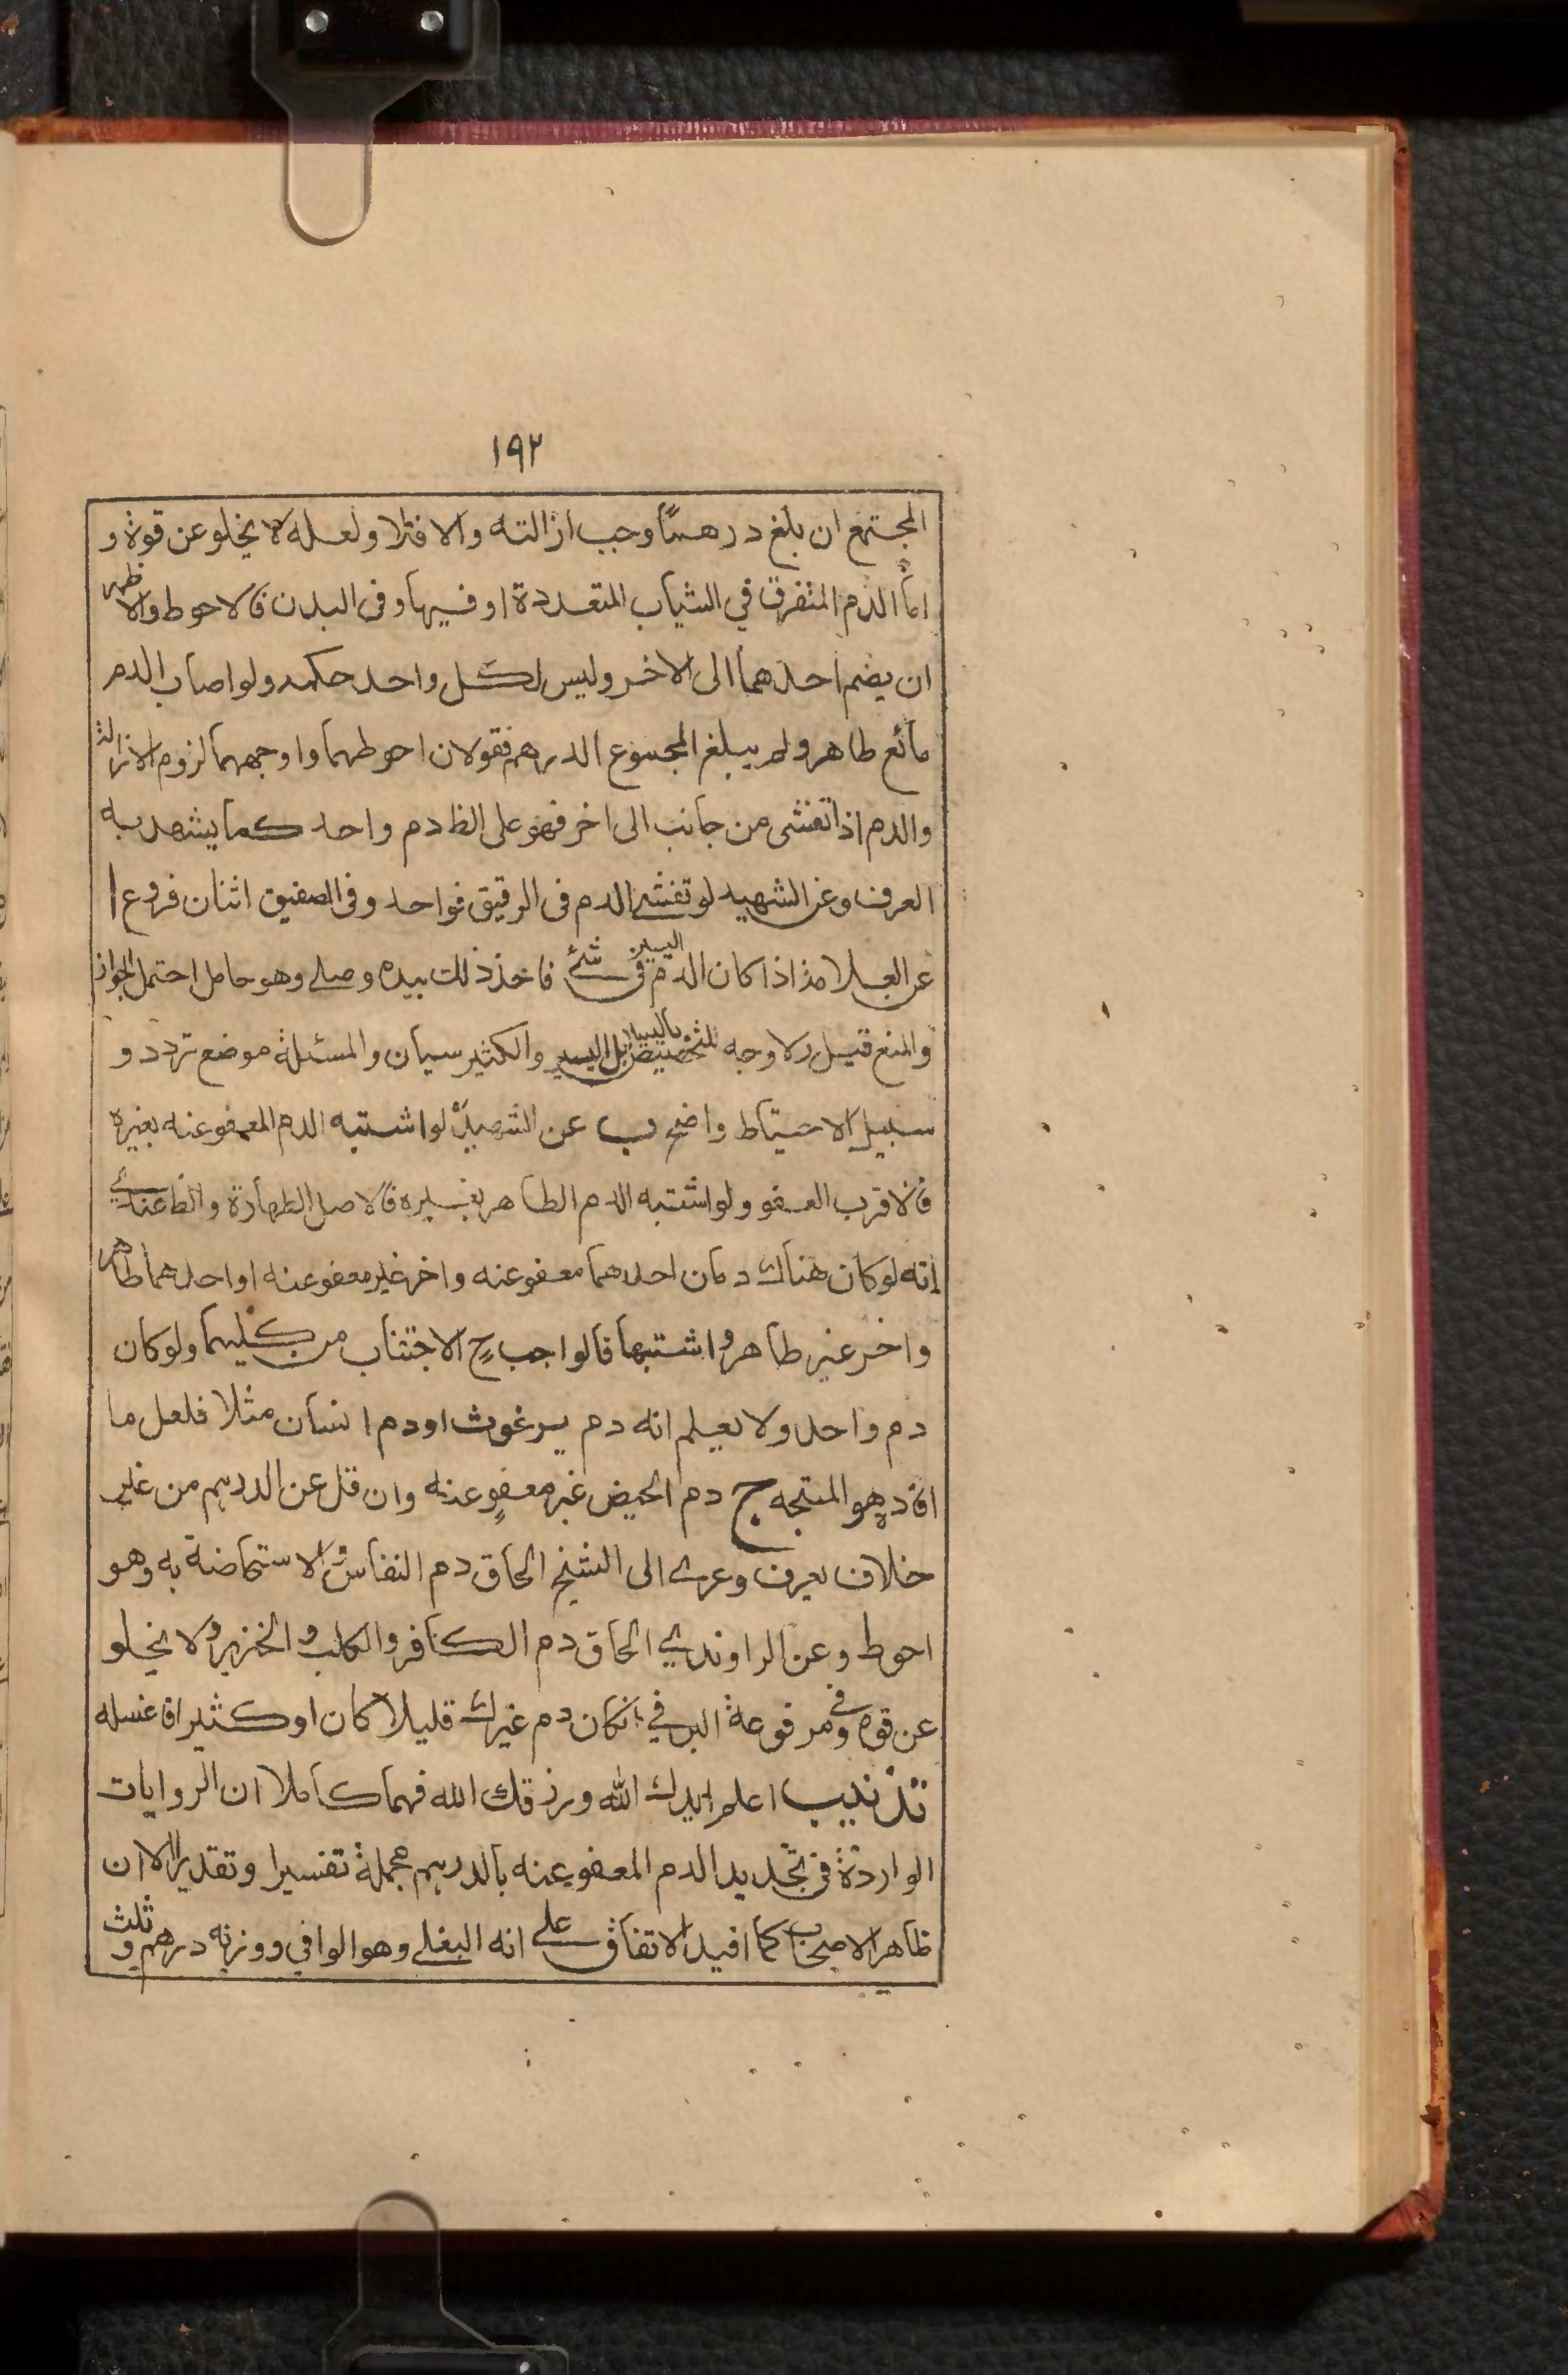 ١٩٢
المجتمع ان بلغ درهمًا وجب ازالته والا فلا ولعله لا يخلو عن قوة و
اما الدم المتفرق في الثياب المتعددة او فيها وفى البدن فالاحوط والاظهر
ان يضم احدهما الى الاخر وليس لكل واحد حكمه ولو اصاب الدم
مائع طاهر ولم يبلغ المجموع الدرهم فقولان احوطهما واوجههما لزوم الازالة
والدم اذا تفشى من جانب الى اخر فهو على الظ دم واحد كما يشهد به
العرف وعن الشهيد لو تفشى الدم فى الرقيق فواحد وفى الصفيق اثنان فروع ا
عن العلامة اذا كان الدم اليسير فى شئ فاخذ ذلك بيده وصلى وهو حامل احتمل الجواز
والمنع قيل ولا وجه للتخصيص باليسير بل اليسير والكثير سيان والمسئلة موضع تردد و
سبيل الاحتياط واضح ب عن الشهيد لو اشتبه الدم المعفو عنه بغيره
فالاقرب العفو ولو اشتبه الدم الطاهر بغيره فالاصل الطهارة والظ عندي
انه لو كان هناك دمان احدهما معفو عنه واخر غير معفو عنه او احدهما طاهر
واخر غير طاهر واشتبها فالواجب ح الاجتناب من كليهما ولو كان
دم واحد ولا يعلم انه دم برغوث او دم انسان مثلا فلعل ما
افاده هو المتجه ج دم الحيض غير معفو عنه وان قل عن الدرهم من غير
خلاف يعرف وعزى الى الشيخ الحاق دم النفاس والاستحاضة به وهو
احوط وعن الراوندي الحاق دم الكافر والكلب والخنزير ولا يخلو
عن قوة وفى مرفوعة البرقي انكان دم غيرك قليلا كان او كثيرا فاغسله
تذنيب اعلم ايدك الله ورزقك الله فهما كاملا ان الروايات
الواردة فى تحديد الدم المعفو عنه بالدرهم مجملة تفسيرا وتقديرا الا ان
ظاهر الاصحاب كما افيد الاتفاق على انه البغلى وهو الوافي ووزنه درهم وثلث